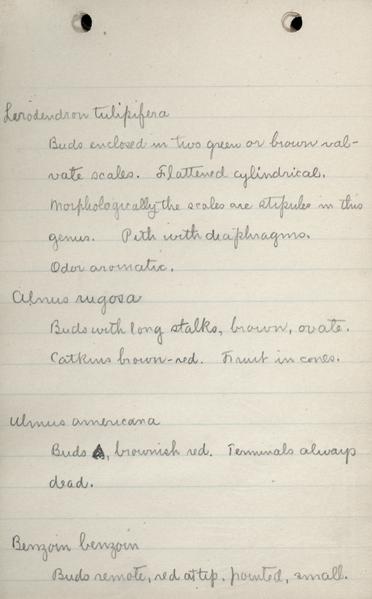 Leriodendron tulipifera
Buds enclosed in two green or brown val-
vate scales. Flattened cylindrical.
Morphologically the scales are stipules in this
genus. Pith with diaphragms.
Odor aromatic.
Alnus rugosa
Buds with long stalks, brown, ovate.
Catkins brown-red. Fruit in cones.
Ulmus americana
Buds , brownish red. Terminals always
dead.
Benzoin benzoin
Buds remote, red at tip, pointed, small.